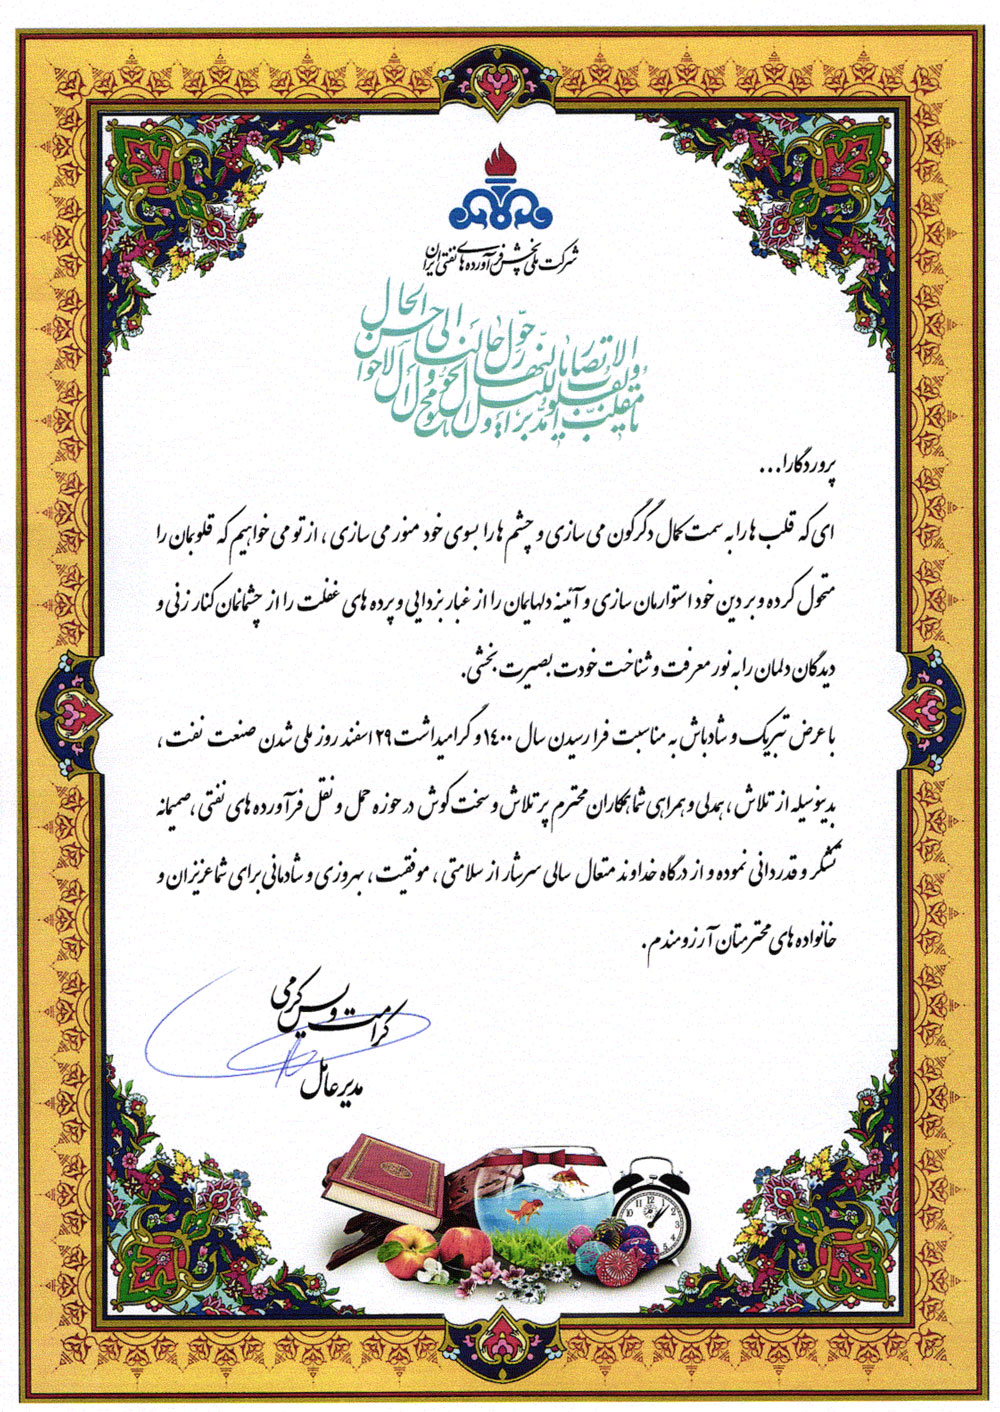 شرکت ملی پخش فرآورده های نفتی ایران
یا مقلب القلوب والابصار یا مدبر اللیل والنهار یا محول الحول والاحوال حول حالنا الی احسن الحال
پروردگارا...
ای که قلب ها را به سمت کمال دگرگون می سازی و چشم ها را بسوی خود منور می سازی ، از تو می خواهیم که قلوبمان را
متحول کرده و بر دین خود استوارمان سازی و آئینه دلهایمان را از غبار بزدایی و پرده های غفلت را از چشمانمان کنار زنی و
دیدگان دلمان را به نور معرفت و شناخت خودت بصیرت بخشی.
با عرض تبریک و شادباش به مناسبت فرا رسیدن سال ۱۴۰۰ و گرامیداشت ۲۹ اسفند روز ملی شدن صنعت نفت ،
بدینوسیله از تلاش ، همدلی و همراهی شما همکاران محترم پر تلاش و سخت کوش در حوزه حمل و نقل فرآورده های نفتی ، صمیمانه
تشکر و قدردانی نموده و از درگاه خداوند متعال سالی سرشار از سلامتی ، موفقیت ، بهروزی و شادمانی برای شما عزیزان و
خانواده های محترمتان آرزومندم.
کرامت ویس کرمی
مدیرعامل
10 11 12 1 2